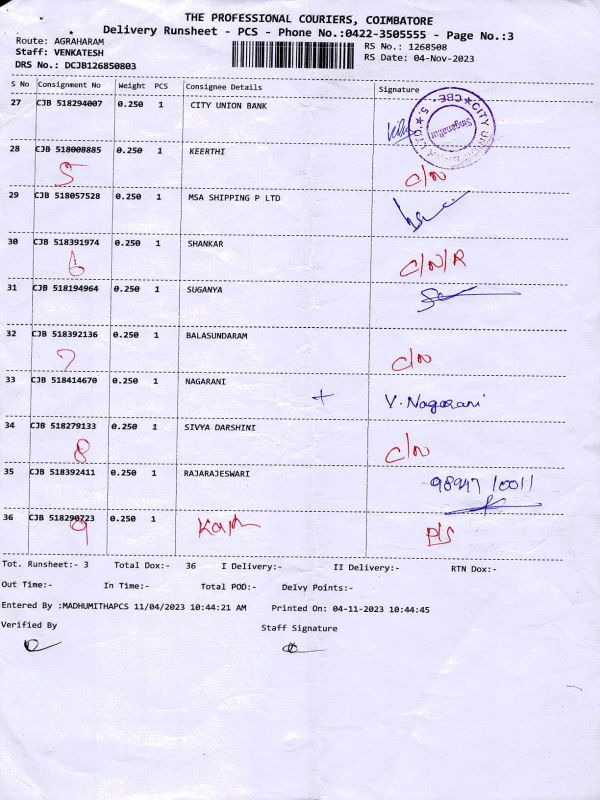 THE PROFESSIONAL COURIERS, COIMBATORE
Delivery Runsheet - PCS - Phone No.:0422-3505555 - Page No.:3
Route: AGRAHARAM
RS No.: 1268508
Staff: VENKATESH
RS Date: 04-Nov-2023
DRS No.: DCJB126850803
S No Consignment No Weight PCS Consignee Details Signature
27 CJB 518294007 0.250 1 CITY UNION BANK
CITY UNION BANK LTD ★ CBE - 5 ★
Singanallur
28 CJB 518008885 0.250 1 KEERTHI
5 C/N
29 CJB 518057528 0.250 1 MSA SHIPPING P LTD
30 CJB 518391974 0.250 1 SHANKAR
6 C/N/R
31 CJB 518194964 0.250 1 SUGANYA
32 CJB 518392136 0.250 1 BALASUNDARAM
7 C/N
33 CJB 518414670 0.250 1 NAGARANI
+ V. Nagarani
34 CJB 518279133 0.250 1 SIVYA DARSHINI
8 C/N
35 CJB 518392411 0.250 1 RAJARAJESWARI
98947 10011
36 CJB 518290723 0.250 1
9 P/S
Tot. Runsheet:- 3 Total Dox:- 36 I Delivery:- II Delivery:- RTN Dox:-
Out Time:- In Time:- Total POD:- Delvy Points:-
Entered By :MADHUMITHAPCS 11/04/2023 10:44:21 AM Printed On: 04-11-2023 10:44:45
Verified By Staff Signature